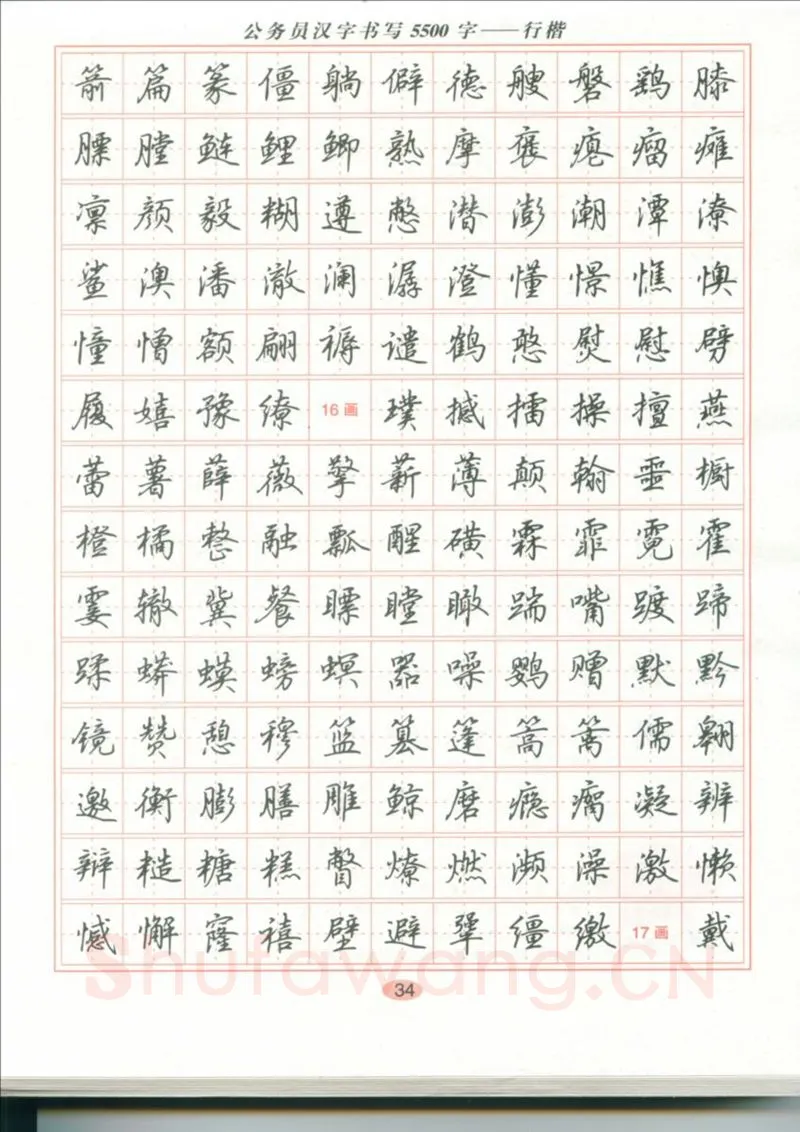 公务员汉字书写5500字——行楷
箭篇篆僵躺僻德艘磐鹞膝
膘膛鲢鲤鲫熟摩褒瘪瘤瘫
凛颜毅糊遵憋潜澎潮潭潦
鲨澳潘澈澜潺澄懂憬憔懊
憧憎额翩褥谴鹤憨熨慰劈
履嬉豫缭16画璞撼擂操擅燕
蕾薯薛薇擎薪薄颠翰噩橱
橙橘整融瓢醒磺霖霏霓霍
霎辙冀餐瞟瞠瞰踹嘴踱蹄
蹂蟒蟆螃螟器噪鹦赠默黔
镜赞憩穆篮篡篷篙篱儒翱
邀衡膨膳雕鲸磨瘾瘸凝辨
辩糙糖糕瞥燎燃濒澡激懒
憾懈窿禧壁避犟缰缴17画戴
Shufawang.CN
34